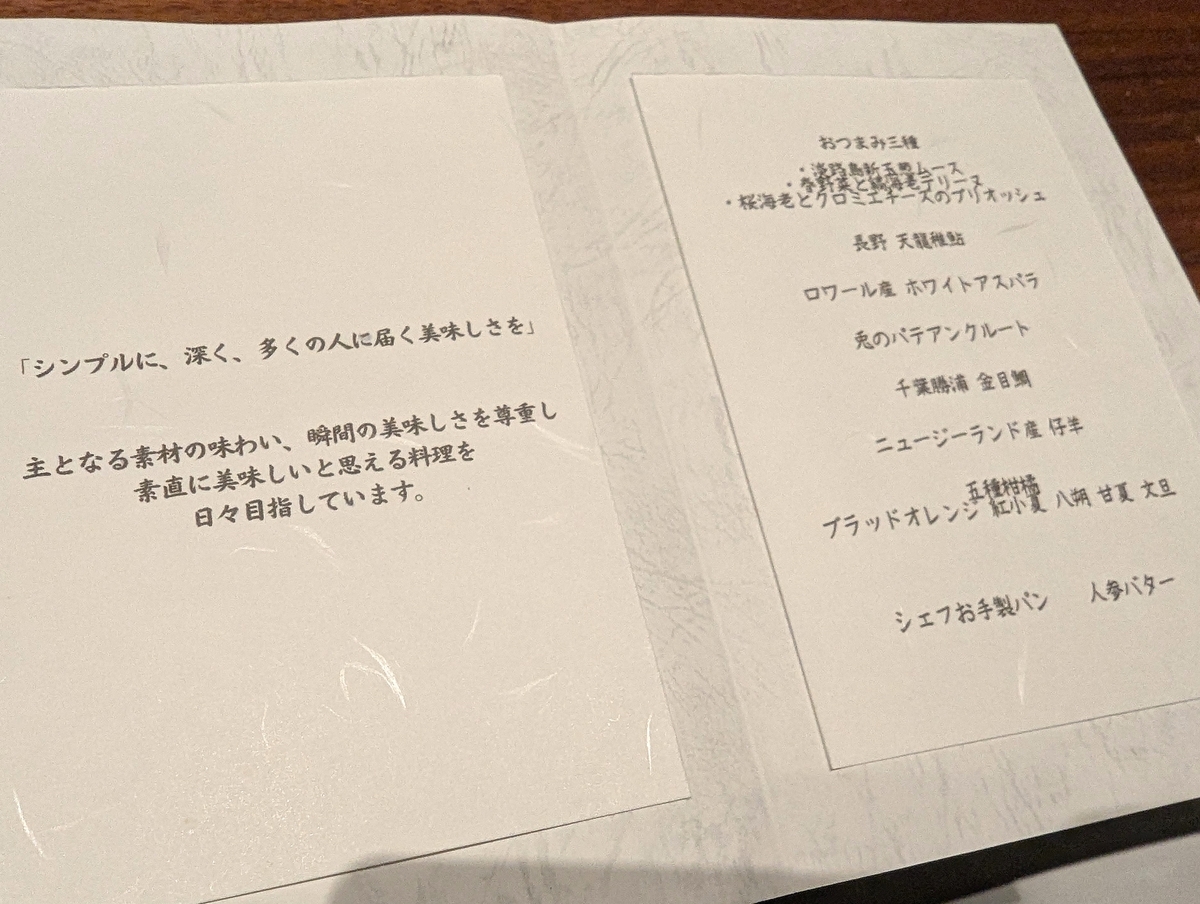 「シンプルに、深く、多くの人に届く美味しさを」
主となる素材の味わい、瞬間の美味しさを尊重し
素直に美味しいと思える料理を
日々目指しています。
おつまみ三種
・淡路島新玉葱ムース
・春野菜と縞海老テリーヌ
・桜海老とクロミエチーズのブリオッシュ
長野 天龍稚鮎
ロワール産 ホワイトアスパラ
兎のパテアンクルート
千葉勝浦 金目鯛
ニュージーランド産 仔羊
五種柑橘
ブラッドオレンジ 紅小夏 八朔 甘夏 文旦
シェフお手製パン 人参バター